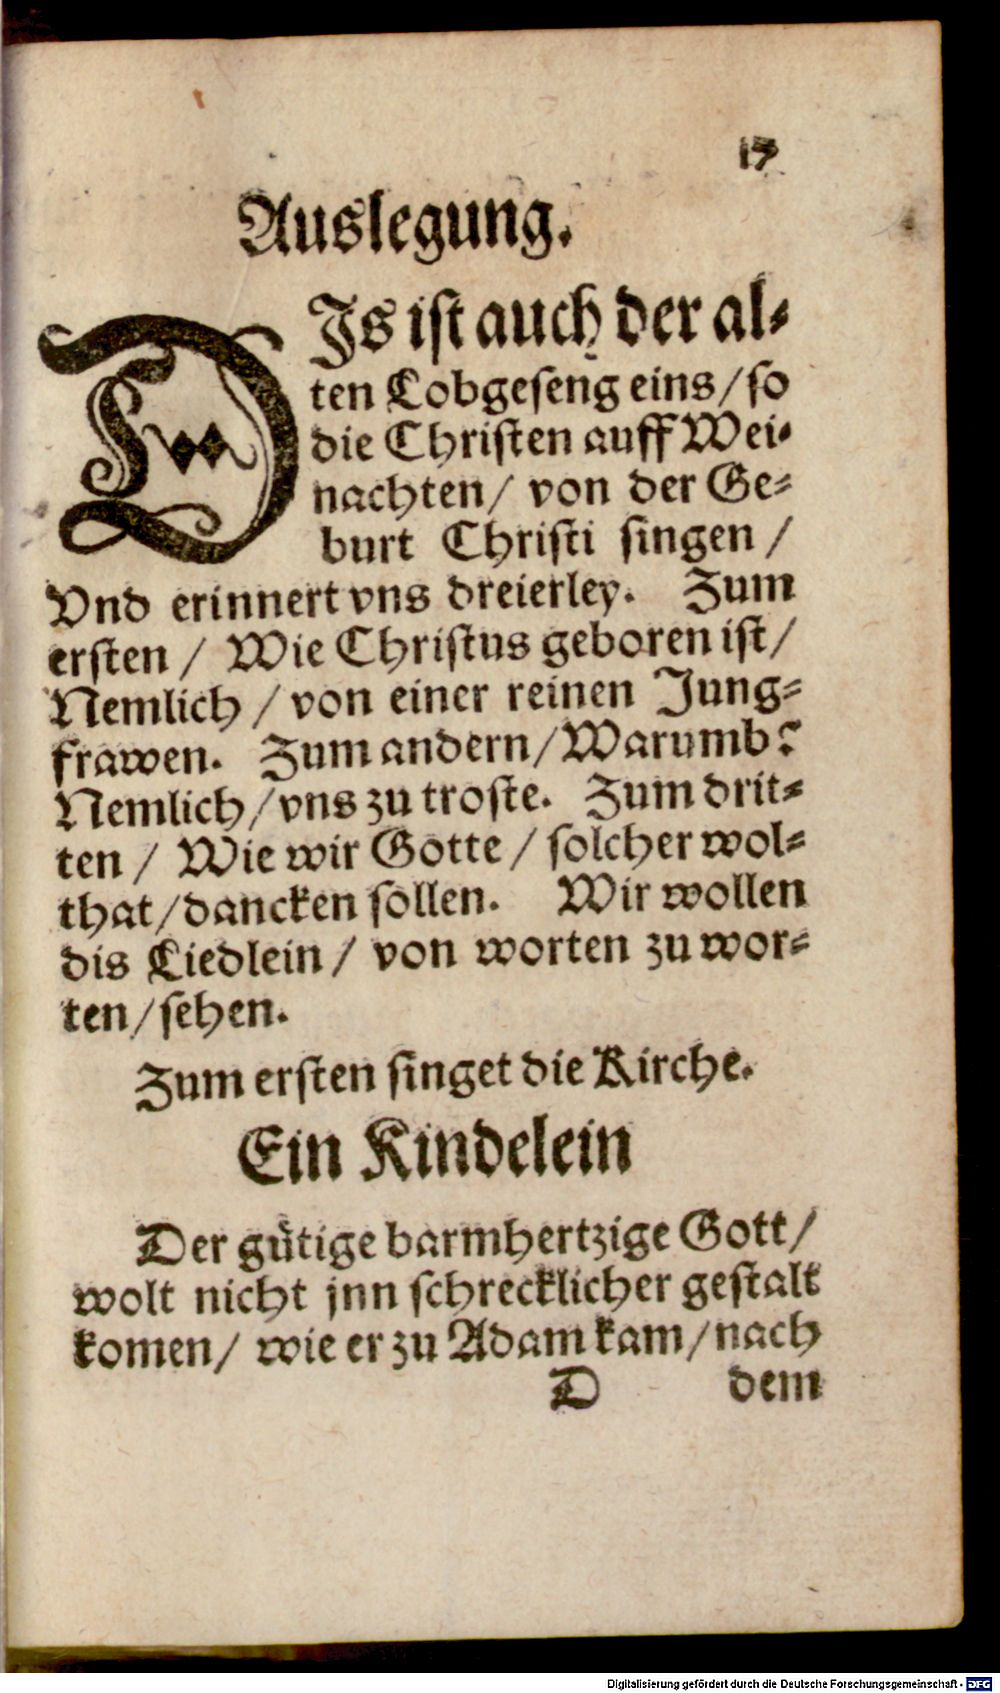 17
Auslegung.
DJs ist auch der al-
ten Lobgeseng eins/so
die Christen auff Wei-
nachten/ von der Ge-
burt Christi singen/
Vnd erinnert vns dreierley. Zum
ersten/ Wie Christus geboren ist/
Nemlich/ von einer reinen Jung-
frawen. Zum andern/Warumb?
Nemlich/vns zu troste. Zum drit-
ten/ Wie wir Gotte/ solcher wol-
that/dancken sollen. Wir wollen
dis Liedlein/ von worten zu wor-
ten/sehen.
Zum ersten singet die Kirche.
Ein Kindelein
Der gütige barmhertzige Gott/
wolt nicht jnn schrecklicher gestalt
komen/ wie er zu Adam kam/nach
D dem
Digitalisierung gefördert durch die Deutsche Forschungsgemeinschaft - DFG